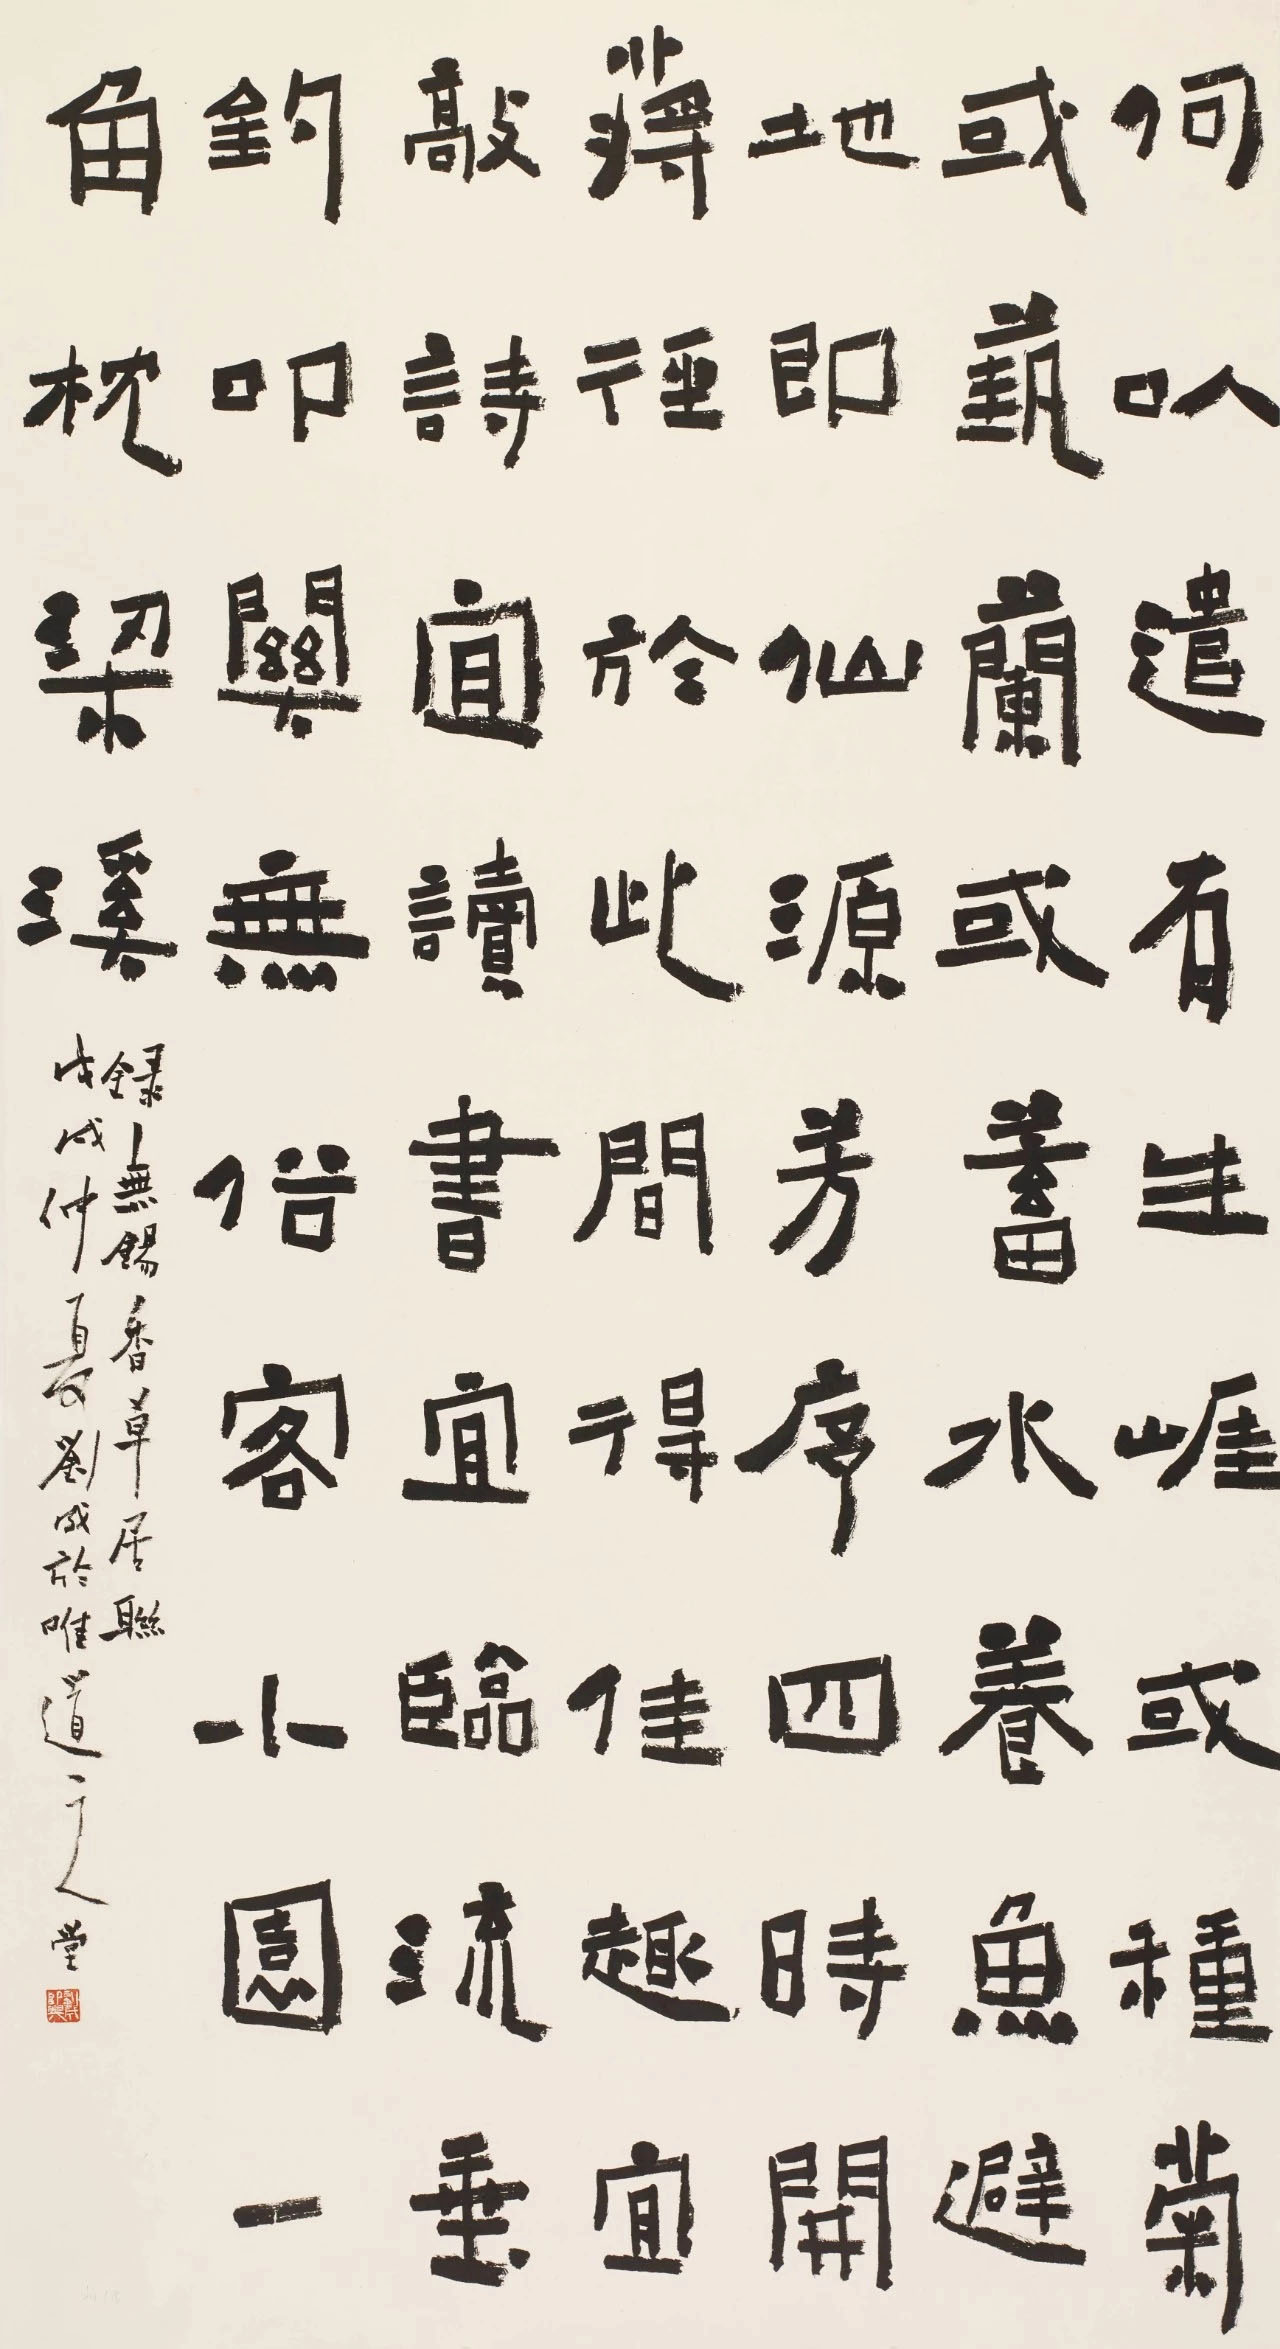 何以遣有生崖或種菊
或藝蘭或蓄水養魚避
地即仙源芳序四時開
蔣徑於此間得佳趣宜
敲詩宜讀書宜臨流垂
釣叩關無俗客小園一
角枕梁溪
録無錫香草居聯
戊戌仲夏劉成於唯道一人堂